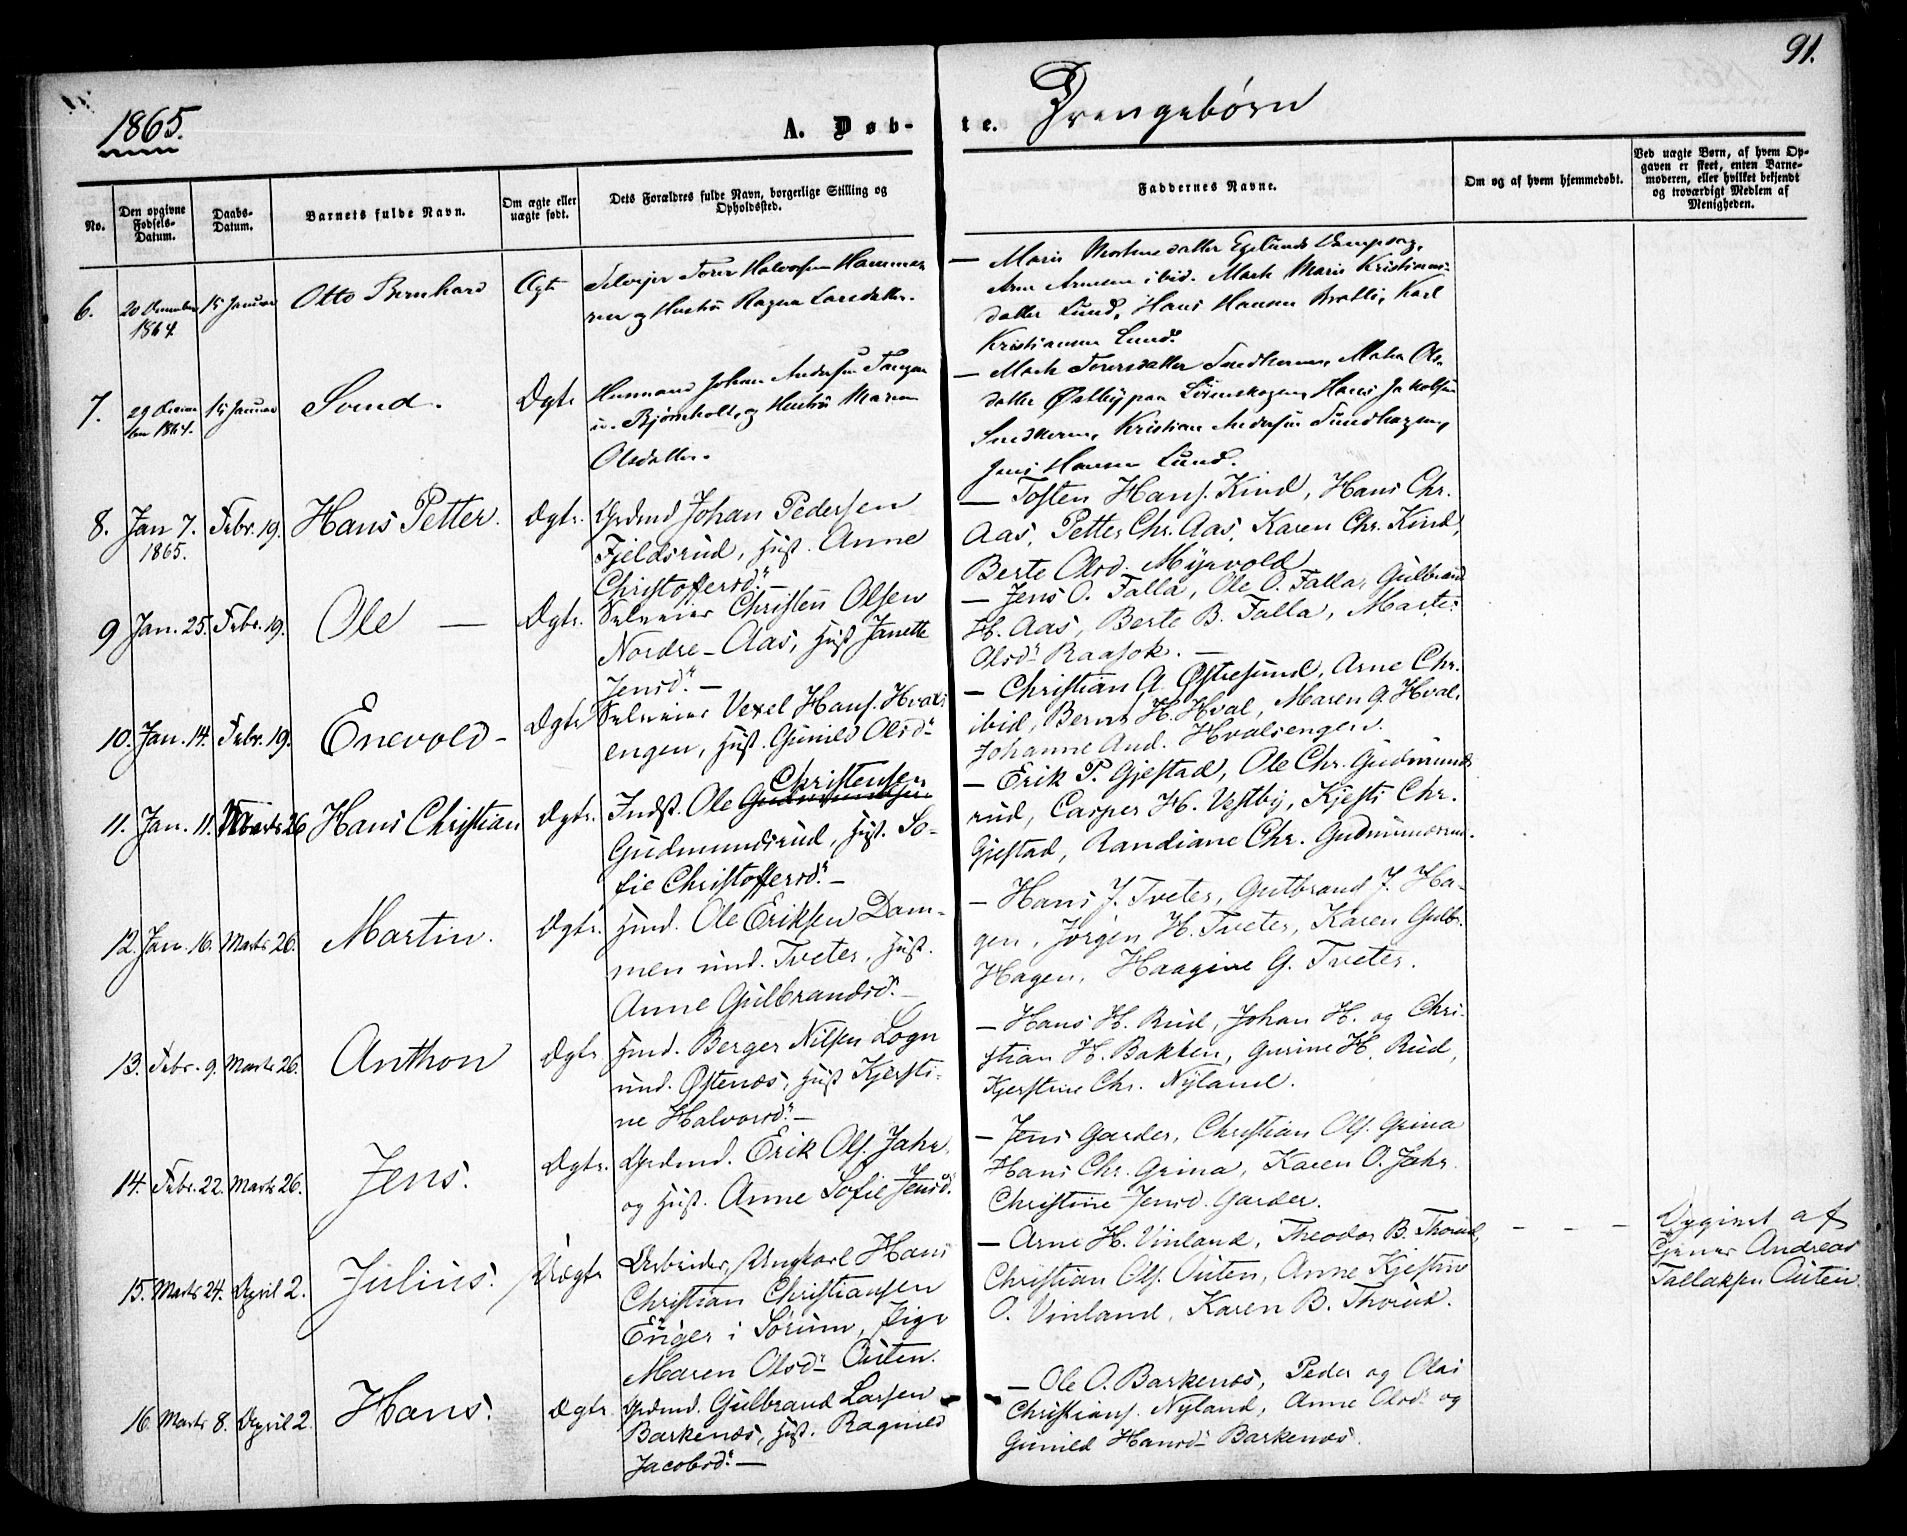 91.
1865.
A. Døb-
te.
Drengebørn
No.
Den opgivne Fødsels-Datum.
Daabs-Datum.
Barnets fulde Navn.
Om ægte eller uægte født.
Dets Forældres fulde Navn, borgerlige Stilling og Opholdssted.
Faddernes Navne.
Om og af hvem hjemmedøbt.
Ved uægte Børn, af hvem Op-
gaven er skeet, enten Barne-
moderen, eller hvilket bekjendt
og troværdigt Medlem af
Menigheden.
6.
20 December
1864.
15 Januar
Otto Bernhard
Ægte
Selvejer Torer Halvorsen Hammer
og Hustru Ragna Larsdatter.
— Maris Mortensdatter
Arne Arnesen ibid. Mark Maris Kristians-
datter Lund, Hans Hansen Bratli, Karl
Kristiansen Lund.
7.
29 Decem-
ber 1864.
15 Januar
Svend.
Ægte
Husmand Johan Andersen Tangen
u. Bjørnholt, og Hustru Maren
Olsdatter.
— Mark Torersdatter Snedkeren, Maka Ols-
datter Østby paa Lørenskogen, Hans Jakobsen
Snedkeren, Kristian Andersen Sundhagen,
Jens Hansen Lund.
8.
Jan 7.
1865.
Febr. 19.
Hans Petter.
Ægte.
Grdmd Johan Pedersen
Fjeldsrud, Hust. Anne
Christoffersd. —
— Tosten Hans. Kind, Hans Chr.
Aas, Petter Chr. Aas, Karen Chr. Kind,
Berte Olsd. Myrvold
9
Jan. 25.
Febr. 19.
Ole —
Ægte.
Selveier Christen Olsen
Nordre-Aas, Hust Janette
Jensd. —
— Jens O. Falla, Ole O. Falla, Gulbrand
H. Aas, Berte B. Falla, Marte
Olsd Raasok. —
10.
Jan. 14.
Febr. 19.
Enevold —
Ægte
Selveier Vexel Hans. Hvals
engen, Hust. Gunild Olsd
— Christian A. Østresund, Arne Chr.
ibid, Bernt H. Hval, Maren G. Hval.
Johanne And. Hvalsengen.
11.
Jan. 11.
Marts 26
Hans Christian
Ægte.
Christensen
Indst. Ole
Gudmundsrud, Hust. So-
fie Christoffersd. —
— Erik P. Gjestad, Ole Chr. Gudmunds
rud, Casper H. Vestby, Kjesti Chr.
Gjestad, Randiane Chr. Gudmundsrud
12.
Jan. 16.
Marts 26.
Martin.
Ægte.
Hmd. Ole Eriksen Dam-
men und. Tveter, Hust.
Anne Gulbrandsd. —
— Hans J. Tveter, Gulbrand J. Ha-
gen, Jørgen H. Tveter, Karen Gulbr.
Hagen, Haagine G. Tveter.
13.
Febr. 9.
Marts 26.
Anthon
Ægte
Hmd. Berger Nilsen Logn
und. Østenæs, Hust Kjersti-
ne Halvorsd. —
— Hans H. Rud, Johan H. og Chri-
stian H. Bakken, Gurine H. Rud,
Kjerstine Chr. Nyland.
14.
Febr. 22.
Marts 26.
Jens.
Ægte.
Grdmd. Erik Ols. Jahr,
og Hust. Anne Sofie Jensd.
— Jens Garder, Christian Ols. Grina
Hans Chr. Grina, Karen O. Jahr.
Christine Jensd. Garder.
15.
Marts 24.
April 2.
Julius.
Uægte
Arbeider, Ungkarl Hans
Christian Christiansen
Enger i Sørum, Pige
Maren Olsd Auten.
— Arne H. Vinland, Theodor B. Thorud,
Christian Ols. Auten, Anne Kjestin
O. Vinland, Karen B. Thorud.
— — —
Opgivet af
Gjener Andreas
Tallaksen Auten.
16.
Marts 8.
April 2.
Hans.
Ægte
Grdmd. Gulbrand Larsen
Barkenæs, Hust. Ragnild
Jacobsd. —
— Ole O. Barkenæs, Peder og Olai
Christians. Nyland, Anne Olsd og
Gunild Hansd Barkenæs.